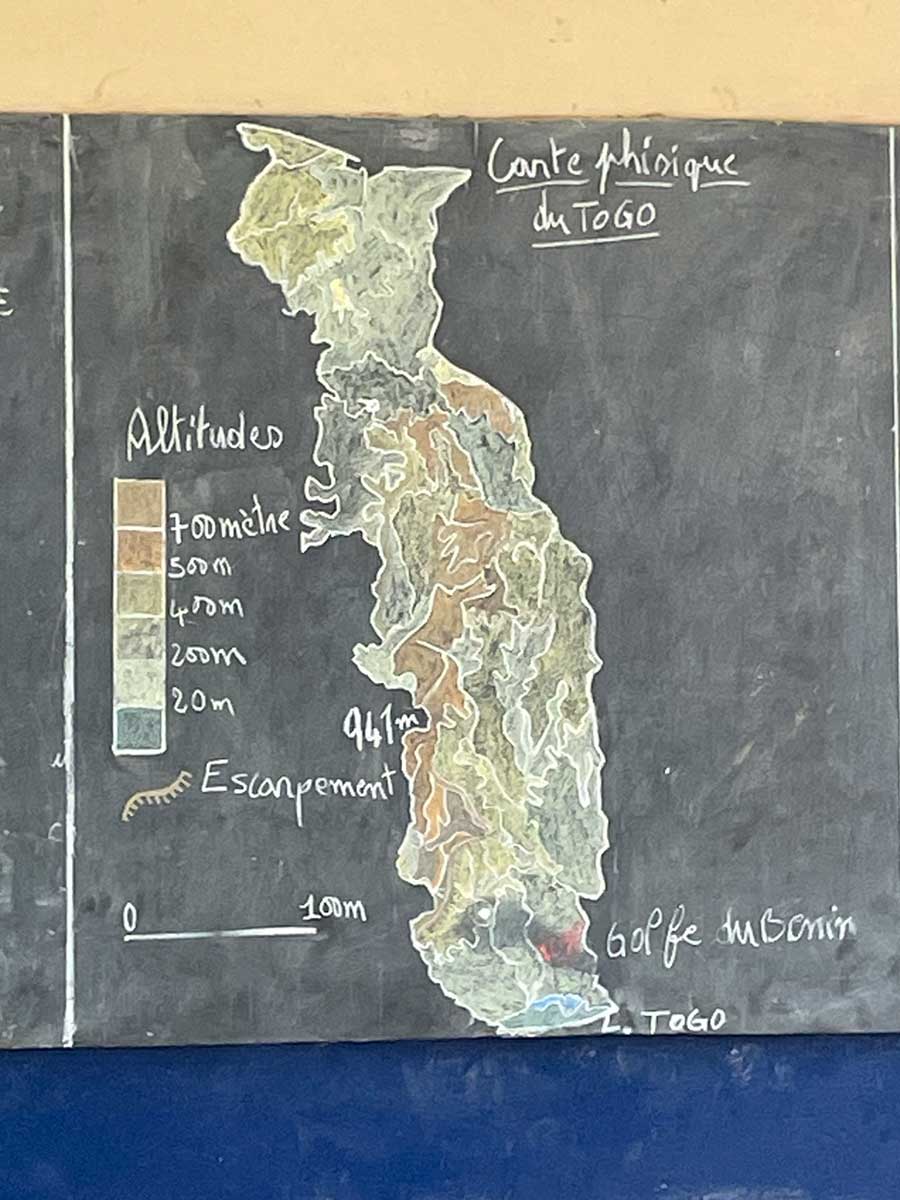 Carte phisique
du TOGO
Altitudes
700 mètre
500m
400m
200m
20m
941m
Escarpement
0 100m
Golfe du Benin
L. TOGO